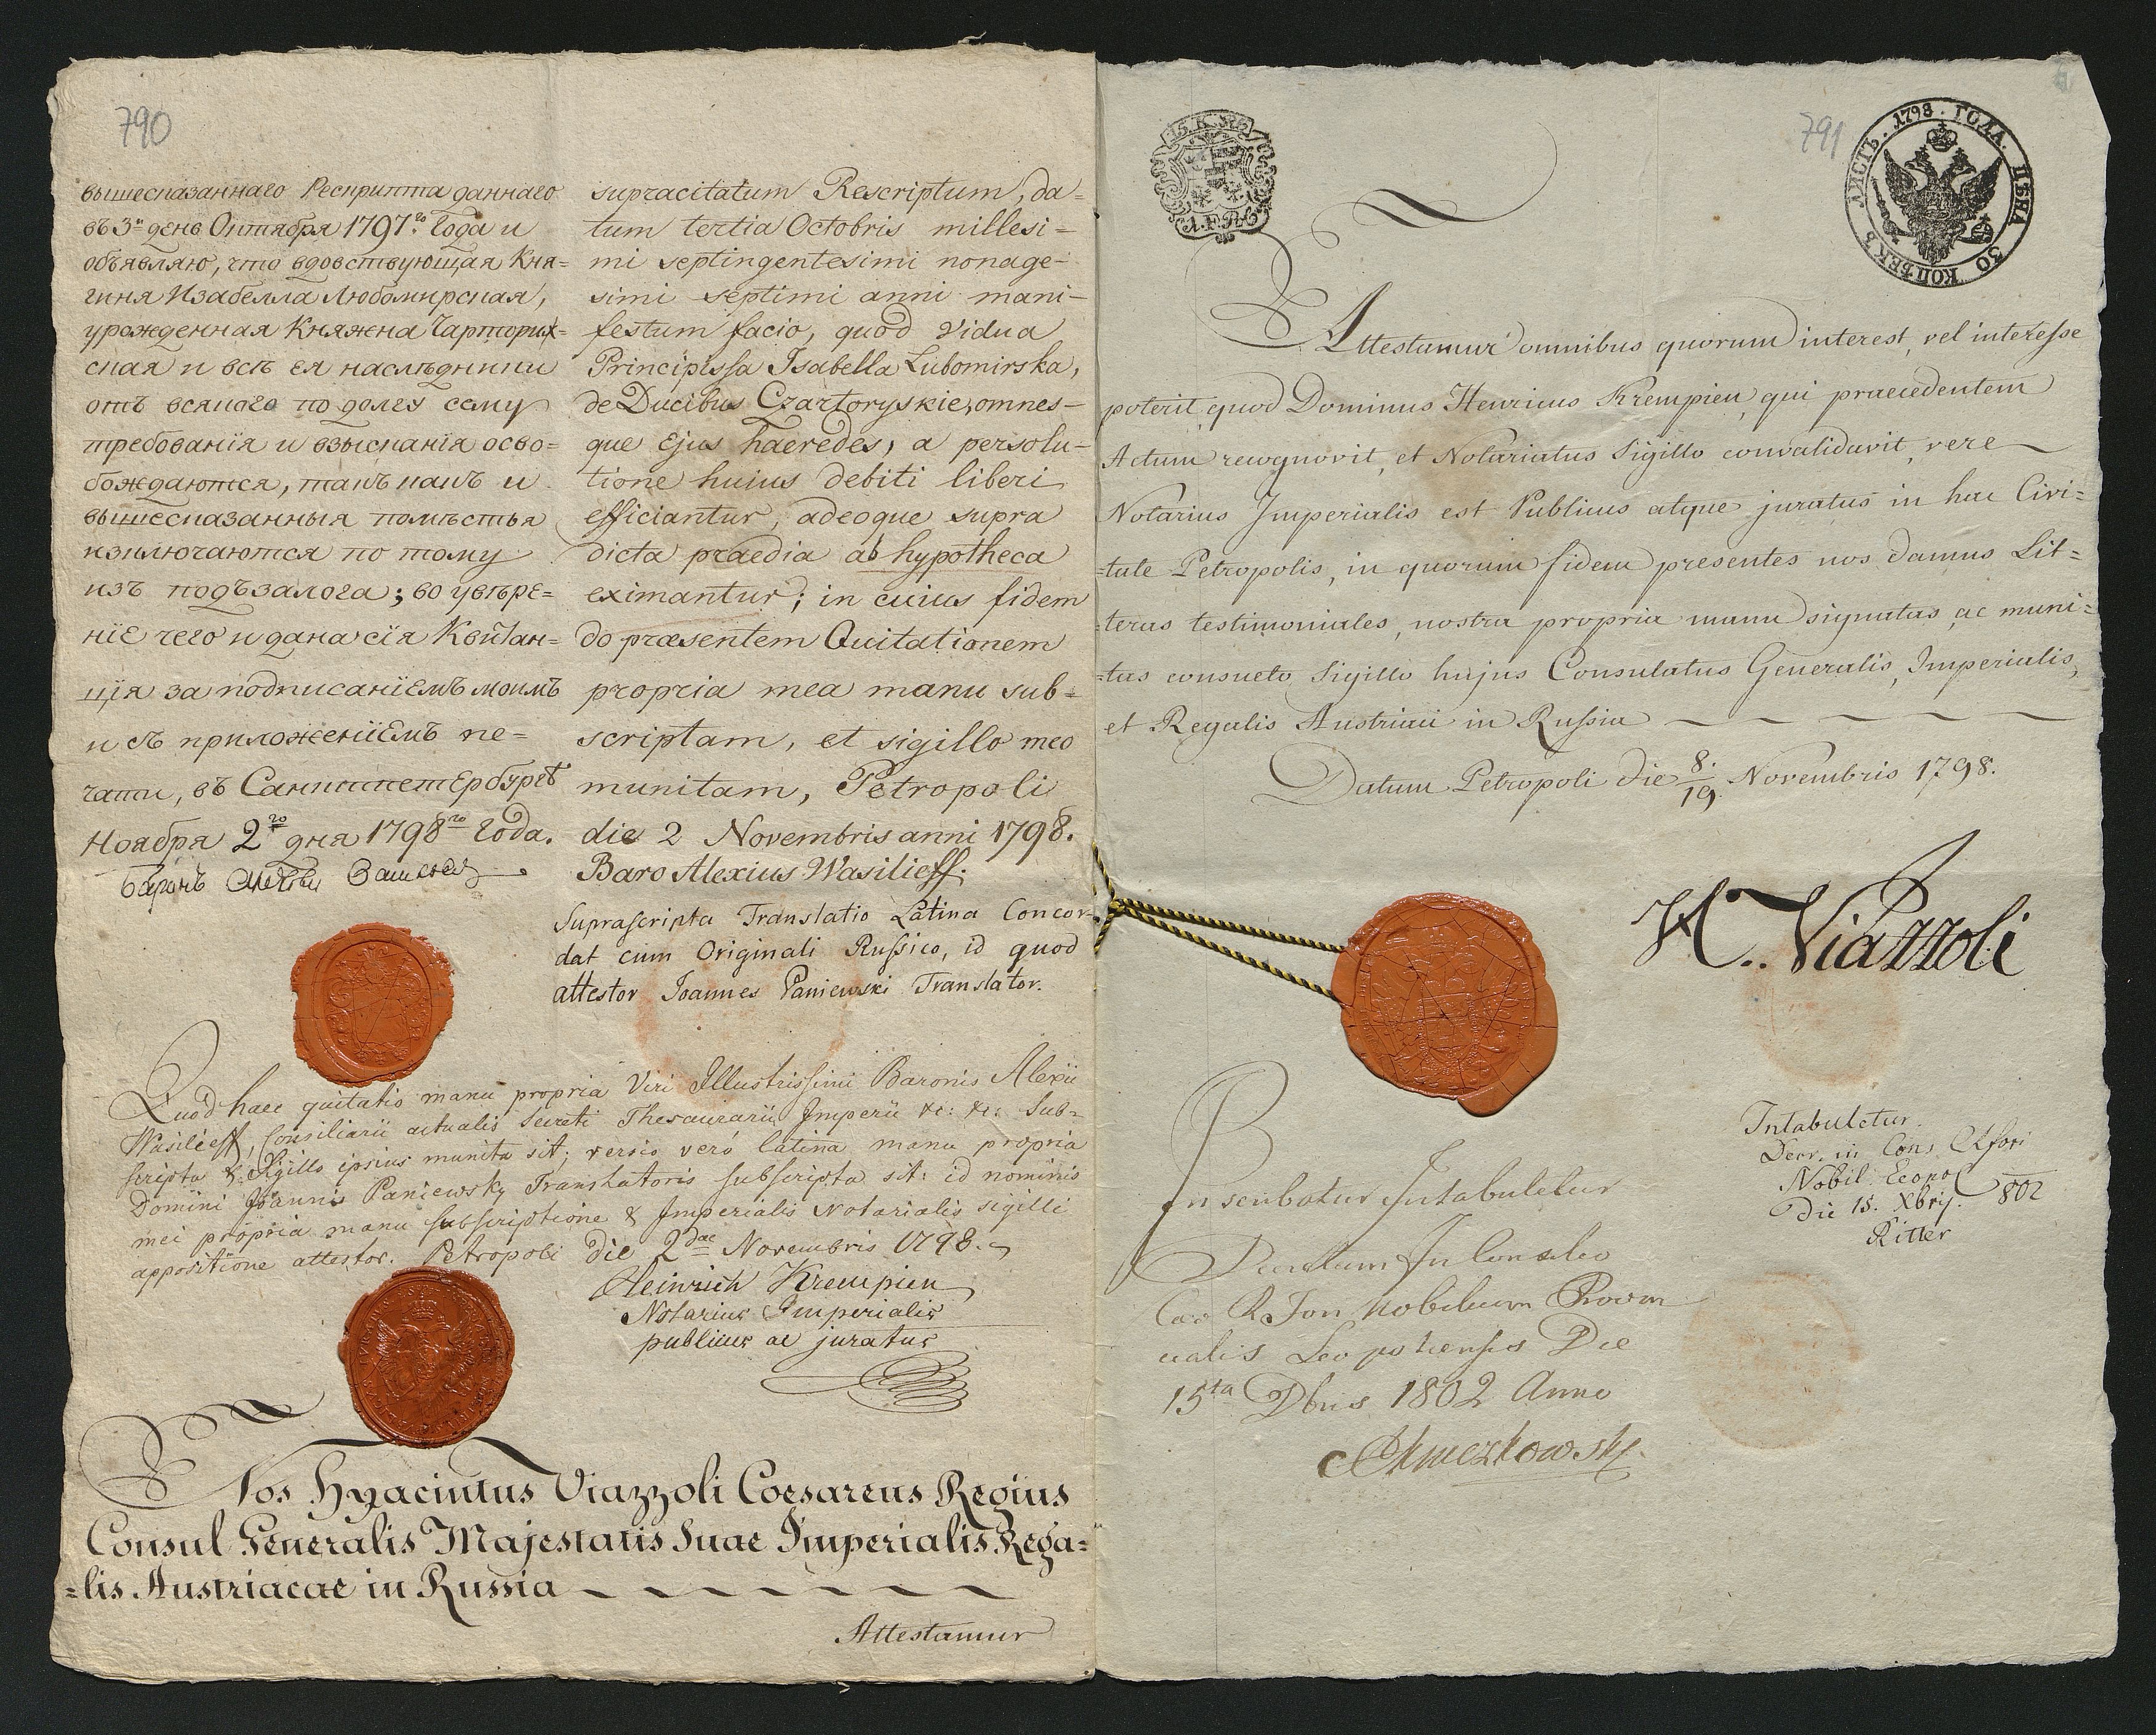 790
вышесказаннаго Рескрипта даннаго
въ 3й день Октября 1797го Года и
объявляю, что вдовствующая Кня=
гиня Изабелла Любомирская,
урожденная Княжна Чарториж=
ская и всѣ ея наслѣдники
отъ всякаго по долгу сему
требованїя и взысканїя осво=
бождаются, такъ какъ и
вышесказанныя помѣстья
изключаются по тому
изъ подъ залога; во увѣре=
нїе чего и дана сїя Квитан=
цїя за подписанїемъ моимъ
и съ приложенїемъ пе=
чати, въ Санктпетербургѣ
Ноября 2го дня 1798го Года.
Баронъ Алексѣй Васильевъ
supracitatum Rescriptum, da=
tum tertia Octobris millesi=
mi septingentesimi nonage=
simi septimi anni mani=
festum facio, quod vidua
Principissa Isabella Lubomirska,
de Ducibus Czartoryskie, omnes=
que Ejus haeredes, a persolu=
tione huius debiti liberi
efficiantur, adeoque supra
dicta praedia ab hypotheca
eximantur; in cuius fidem
do præsentem Quitationem
propria mea manu sub=
scriptam, et sigillo meo
munitam, Petropoli
die 2 Novembris anni 1798.
Baro Alexius Wasilieff.
Suprascripta Translatio Latina Concor=
dat cum Originali Russico, id quod
attestor Joannes Paniewski Translator.
Quod haec quitatio manu propria Viri Illustrissimi Baronis Alexii
Wasilieff, Consiliarii actualis Secreti Thesaurarii Imperii &c: &c: sub=
scripta & Sigillo ipsius munita sit; versio verò latina manu propria
Domini Joannis Paniewsky Translatoris subscripta sit: id nominis
mei propria manu subscriptione & Imperialis Notarialis sigilli
appositione attestor. Petropoli die 2dae Novembris 1798.
Heinrich Krempien
Notarius Imperialis
publicus ac juratus
Nos Hyacintus Viazzoli Coesareus Regius
Consul Generalis Majestatis Suae Imperialis Rega=
=lis Austriacae in Russia
Attestamur
15. K.
A.F.R.
791
ЛИСТЪ. 1798. ГОДА. ЦѢНА 30 КОПѢЕКЪ
Attestamur omnibus quorum interest, vel interesse
poterit, quod Dominus Henricus Krempien, qui praecedentem
Actum recognovit, et Notariatus Sigillo convalidavit, vere
Notarius Imperialis est Publicus atque juratus in hac Civi=
=tate Petropolis, in quorum fidem presentes nos damus Lit=
=teras testimoniales, nostra propria manu signatas, ac muni=
=tas consueto Sigillo hujus Consulatus Generalis, Imperialis,
et Regalis Austriaci in Russia
Datum Petropoli die 8./19. Novembris 1798.
H. Viazzoli
Intabuletur.
Decr. in Cons.
Nobil. Leopol
Die 15. Xbris. 802
Ritter
Inscribatur Intabuletur
In Consilio
Nobilium
cialis Leopoliensis Die
15ta Xbris 1802 Anno